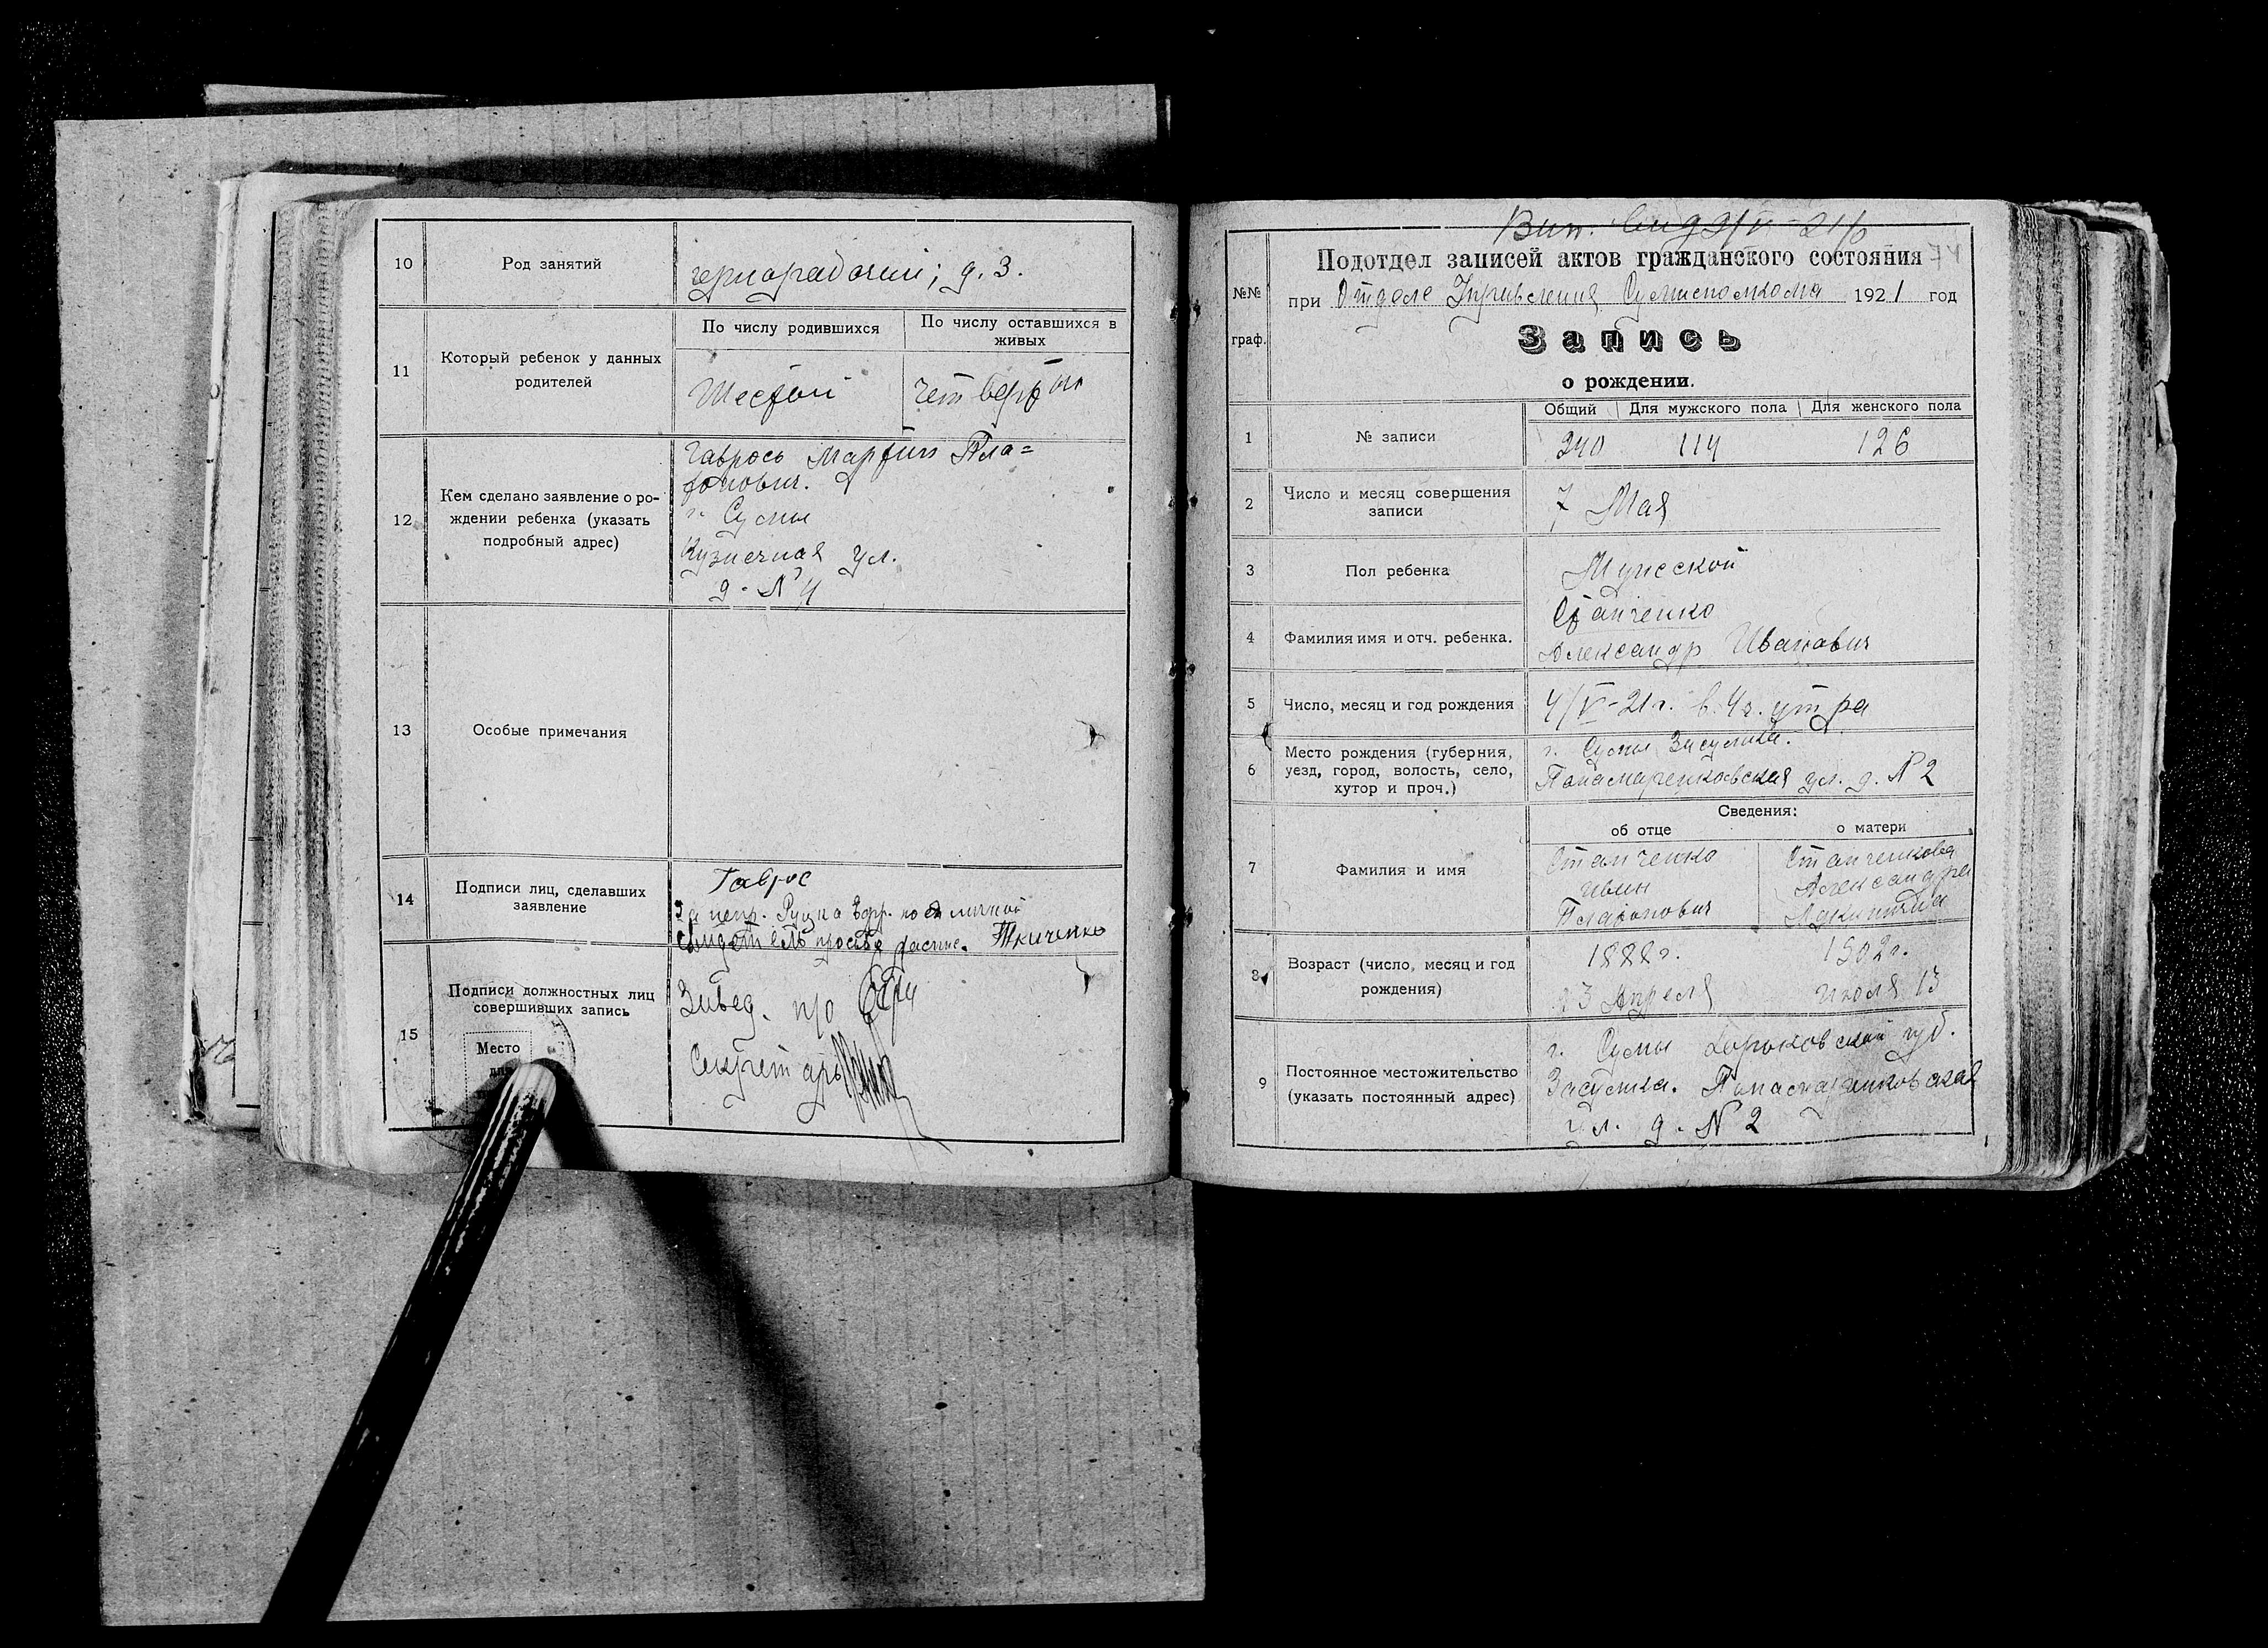 10
Род занятий
чернорабочий; д. з.
11
Который ребенок у данных
родителей
По числу родившихся
По числу оставшихся в
живых
Шестой
четвертый
12
Кем сделано заявление о ро-
ждении ребенка (указать
подробный адрес)
Гаврось Мартин Пла=
тонович.
г. Сумы
Кузнечная ул.
д. № 4
13
Особые примечания
14
Подписи лиц, сделавших
заявление
Гаврос
За негр. Руцко
Ткаченко
15
Подписи должностных лиц
совершивших запись
Место
для
Завед. п/о
Секретарь
Вып.
Подотдел записей актов гражданского состояния
№№
граф.
при Отделе Управления Сумисполкома 1921 год
Запись
о рождении.
1
№ записи
Общий Для мужского пола Для женского пола
240 114 126
2
Число и месяц совершения
записи
7 Мая
3
Пол ребенка
Мужской
4
Фамилия имя и отч. ребенка.
Станченко
Александр Иванович
5
Число, месяц и год рождения
4/V-21 г. в 4 ч. утра
6
Место рождения (губерния,
уезд, город, волость, село,
хутор и проч.)
г. Сумы Засумка.
Панамаренковская ул. д. № 2
7
Фамилия и имя
Сведения:
об отце
о матери
Станченко
Иван
Станченкова
Александра
8
Возраст (число, месяц и год
рождения)
1888 г.
23 Апреля
1902 г.
Июля 13
9
Постоянное местожительство
(указать постоянный адрес)
г. Сумы Харьковской губ.
Засумка. Панамаренковская
ул. д. № 2